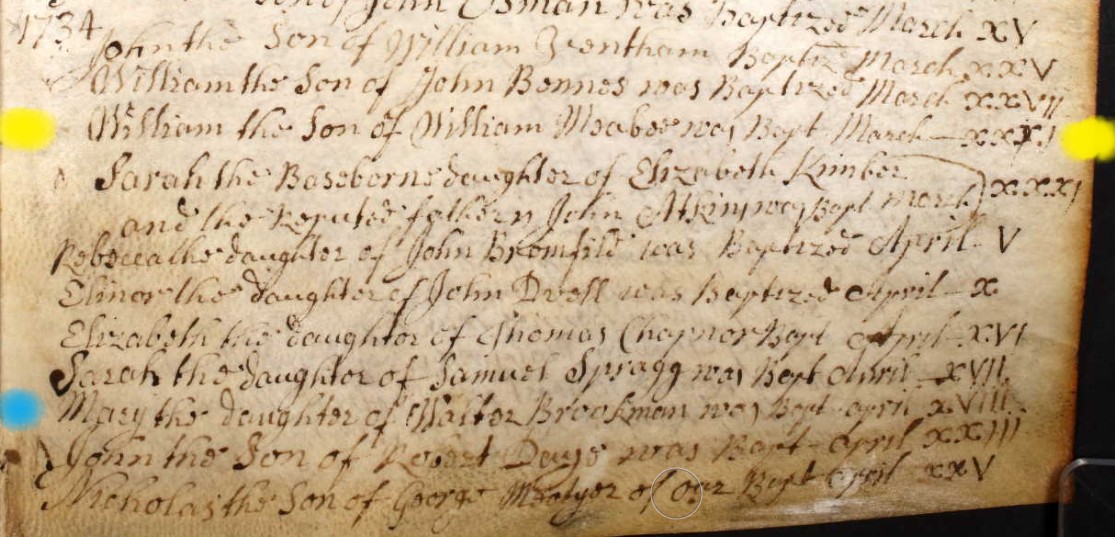 son of John Osman was Baptized March XV
1734
John the Son of William Trentham Baptiz March XXV
William the Son of John Bennes was Baptized March XXVII
William the Son of William Meabee was Bapt March XXXI
Sarah the Baseborne daughter of Elizabeth Kimber
and the Reputed father John Atkins was Bapt March XXXI
Rebecca the daughter of John Bromfild was Baptized April V
Elinor the daughter of John Dvell was Baptized April X
Elizabeth the daughter of Thomas Chapnor Bapt April XVI
Sarah the daughter of Samuel Spragg was Bapt April XVII
Mary the daughter of Walter Brookman was Bapt April XVIII
John the Son of Robert Daye was Bapt April XXIII
Nicholas the Son of George of Bapt April XXV